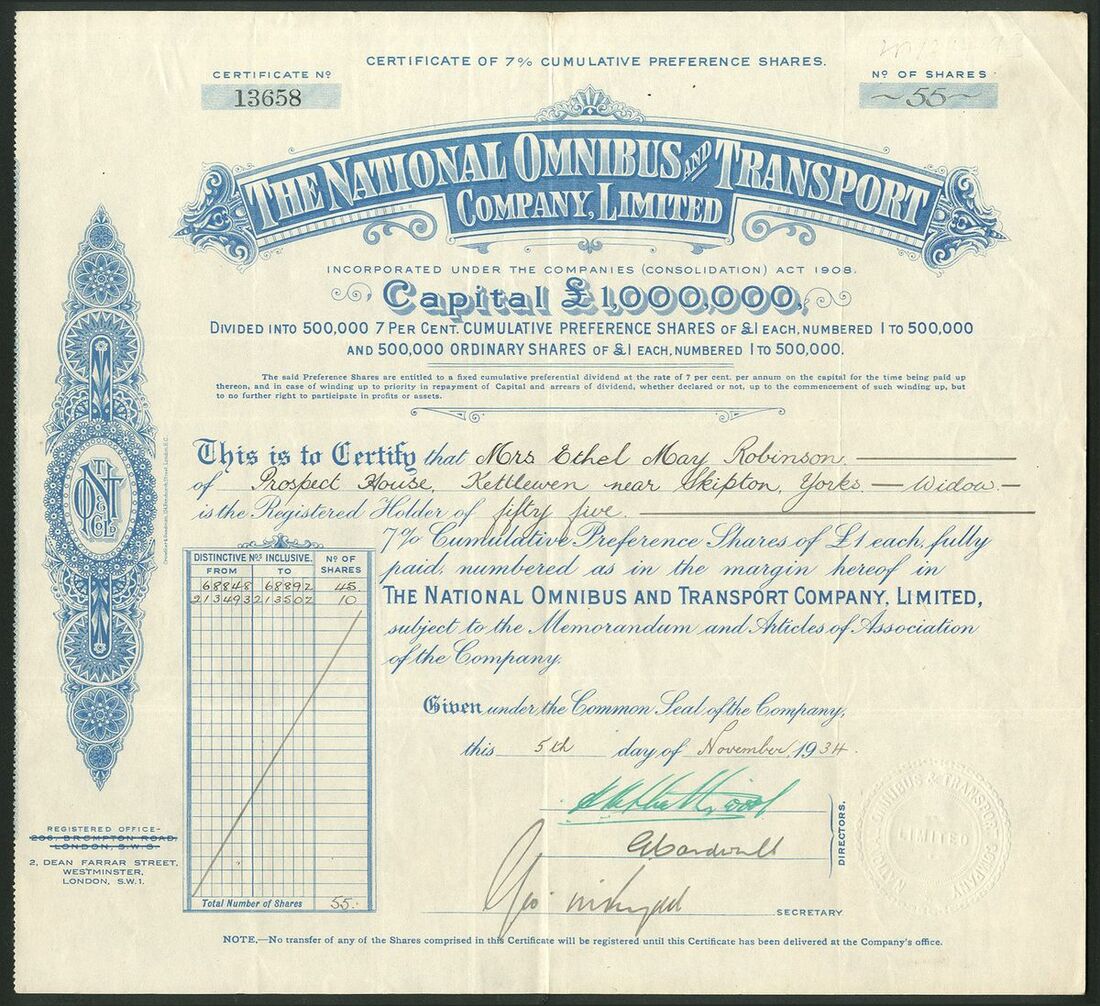 CERTIFICATE OF 7% CUMULATIVE PREFERENCE SHARES.
CERTIFICATE Nº
13658
Nº OF SHARES
~55~
THE NATIONAL OMNIBUS AND TRANSPORT
COMPANY, LIMITED
INCORPORATED UNDER THE COMPANIES (CONSOLIDATION) ACT 1908.
Capital £1,000,000,
DIVIDED INTO 500,000 7 PER CENT. CUMULATIVE PREFERENCE SHARES OF £1 EACH, NUMBERED 1 TO 500,000
AND 500,000 ORDINARY SHARES OF £1 EACH, NUMBERED 1 TO 500,000.
The said Preference Shares are entitled to a fixed cumulative preferential dividend at the rate of 7 per cent. per annum on the capital for the time being paid up
thereon, and in case of winding up to priority in repayment of Capital and arrears of dividend, whether declared or not, up to the commencement of such winding up, but
to no further right to participate in profits or assets.
This is to Certify that Mrs Ethel May Robinson
of Prospect House, Kettlewen near Skipton, Yorks — Widow —
is the Registered Holder of fifty five
7% Cumulative Preference Shares of £1 each, fully
paid, numbered as in the margin hereof in
THE NATIONAL OMNIBUS AND TRANSPORT COMPANY, LIMITED,
subject to the Memorandum and Articles of Association
of the Company.
DISTINCTIVE Nºs INCLUSIVE.
Nº OF SHARES
FROM TO
68848 68892 45
213493 213502 10
Total Number of Shares 55.
Given under the Common Seal of the Company,
this 5th day of November 1934.
DIRECTORS.
SECRETARY
REGISTERED OFFICE-
206, BROMPTON ROAD,
LONDON, S.W.3.
2, DEAN FARRAR STREET,
WESTMINSTER,
LONDON, S.W.1.
NATIONAL OMNIBUS & TRANSPORT COMPANY
LIMITED
NOTE.—No transfer of any of the Shares comprised in this Certificate will be registered until this Certificate has been delivered at the Company's office.